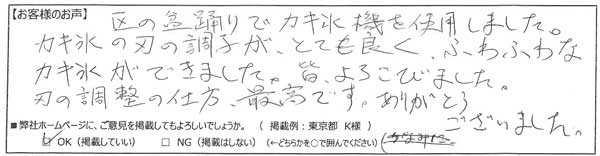 【お客様のお声】
区の盆踊りでカキ氷機を使用しました。
カキ氷の刃の調子が、とても良く、ふわふわな
カキ氷ができました。皆、よろこびました。
刃の調整の仕方、最高です。ありがとう
ございました。
■弊社ホームページに、ご意見を掲載してもよろしいでしょうか。（ 掲載例：東京都 K様 ）
☑ OK（掲載していい） □ NG（掲載はしない）（←どちらかを○で囲んでください）